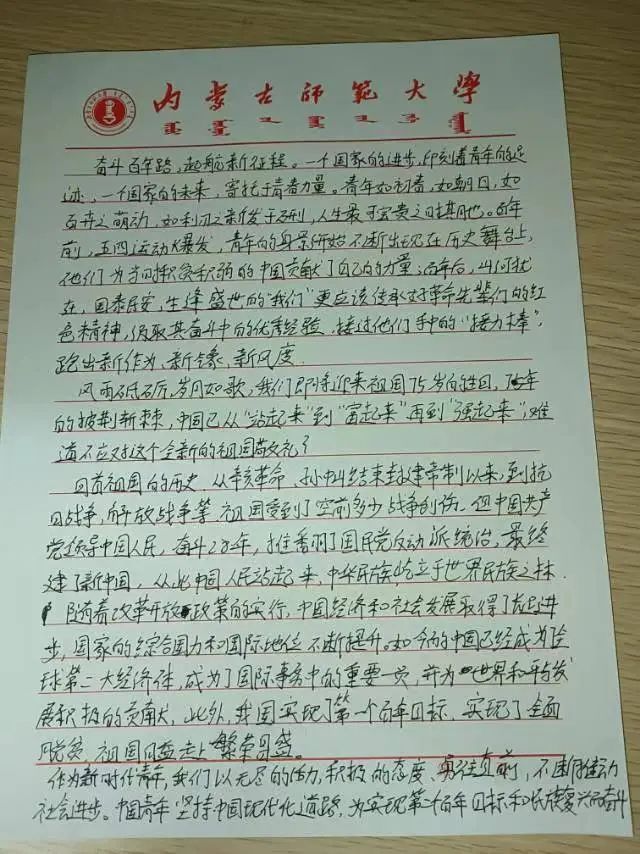 内蒙古师范大学
奋斗百年路，起航新征程。一个国家的进步，印刻着青年的足
迹，一个国家的未来，寄托于青春力量。青年如初春，如朝日，如
百卉之萌动，如利刃之新发于硎，人生最可宝贵之时期也。百年
前，五四运动大爆发，青年的身影开始不断出现在历史舞台上，
他们为当时积贫积弱的中国贡献了自己的力量；百年后，山河犹
在，国泰民安，生逢盛世的“我们”更应该传承好革命先辈们的红
色精神，汲取其奋斗中的优秀经验，接过他们手中的“接力棒”，
跑出新作为、新气象、新风度。
风雨砥砺，岁月如歌，我们即将迎来祖国75岁的生日，75年
的披荆斩棘，中国已从“站起来”到“富起来”再到“强起来”，难
道不应对这个全新的祖国敬礼？
回首祖国的历史，从辛亥革命，孙中山结束封建帝制以来，到抗
日战争，解放战争等，祖国受到了空前多少战争创伤。但中国共产
党领导中国人民，奋斗28年，推翻了国民党反动派统治，最终
建了新中国，从此中国人民站起来，中华民族屹立于世界民族之林．
随着改革开放政策的实行，中国经济和社会发展取得了长足进
步，国家的综合国力和国际地位不断提升。如今的中国已经成为全
球第二大经济体，成为了国际事务中的重要一员，并为世界和平与发
展积极的贡献，此外，我国实现了第一个百年目标，实现了全面
脱贫，祖国日益走上繁荣昌盛。
作为新时代青年，我们以无尽的活力、积极的态度、勇往直前，不断推动
社会进步。中国青年坚持中国现代化道路，为实现第二个百年目标和民族复兴而奋斗